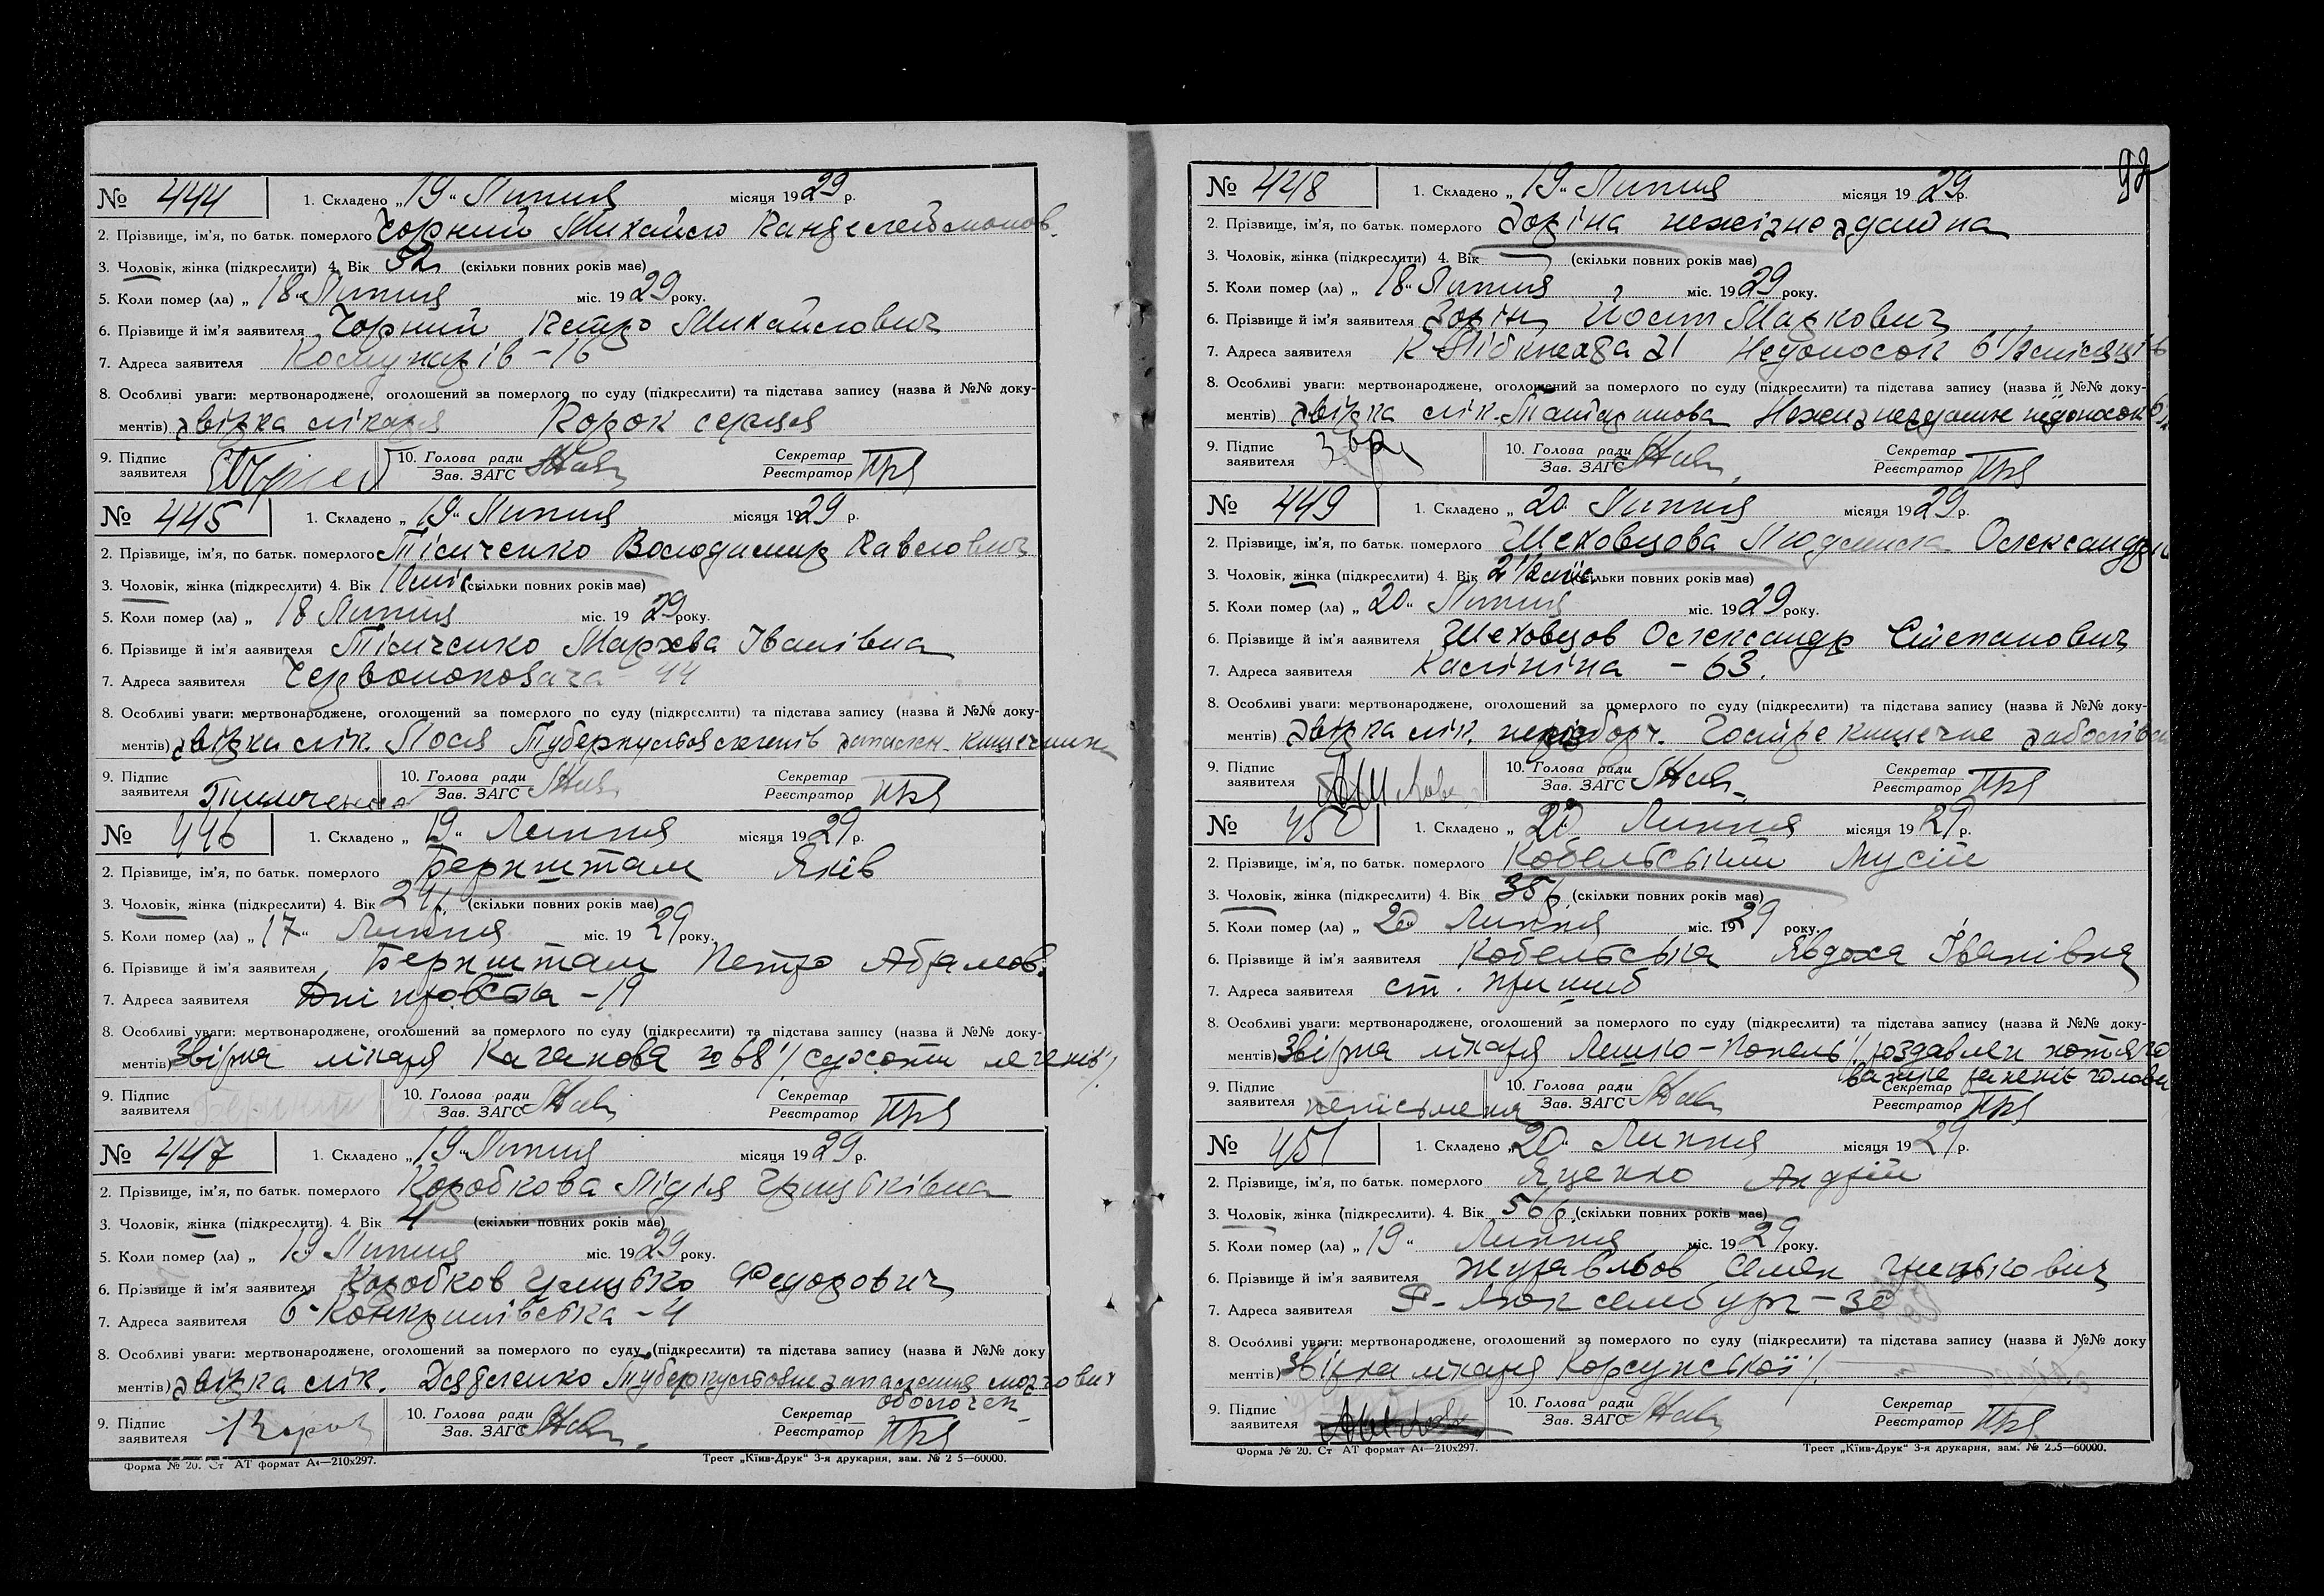 № 444 1. Складено „19“ Липня місяця 1929 р.
2. Прізвище, ім'я, по батьк. померлого Чорний Михайло
3. Чоловік, жінка (підкреслити) 4. Вік 52 (скільки повних років має)
5. Коли помер (ла) „18“ Липня міс. 1929 року.
6. Прізвище й ім'я заявителя Чорний Петро Михайлович
7. Адреса заявителя Комунарів - 16
8. Особливі уваги: мертвонароджене, оголошений за померлого по суду (підкреслити) та підстава запису (назва й №№ доку-
ментів) звірка лікаря Порок серця
9. Підпис заявителя 10. Голова ради Зав. ЗАГС Секретар Реєстратор
№ 445 1. Складено „19“ Липня місяця 1929 р.
2. Прізвище, ім'я, по батьк. померлого Тімченко Володимир Павлович
3. Чоловік, жінка (підкреслити) 4. Вік (скільки повних років має)
5. Коли помер (ла) „18 Липня міс. 19 29 року.
6. Прізвище й ім'я заявителя Тімченко Мархва Іванівна
7. Адреса заявителя Червонокозача 44
8. Особливі уваги: мертвонароджене, оголошений за померлого по суду (підкреслити) та підстава запису (назва й №№ доку-
ментів) звірка лік. Туберкульоз легенів запален. кишечника
9. Підпис заявителя Тимченко 10. Голова ради Зав. ЗАГС Секретар Реєстратор
№ 446 1. Складено „19“ Липня місяця 1929 р.
2. Прізвище, ім'я, по батьк. померлого Бернштам Яків
3. Чоловік, жінка (підкреслити) 4. Вік 24 р. (скільки повних років має)
5. Коли помер (ла) „17“ Липня міс. 19 29 року.
6. Прізвище й ім'я заявителя Бернштам Петро Абрамов.
7. Адреса заявителя Дніпровська - 19
8. Особливі уваги: мертвонароджене, оголошений за померлого по суду (підкреслити) та підстава запису (назва й №№ доку-
ментів) Звірка лікаря Каганова № 68 /сухоти легенів/
9. Підпис заявителя 10. Голова ради Зав. ЗАГС Секретар Реєстратор
№ 447 1. Складено „19“ Липня місяця 1929 р.
2. Прізвище, ім'я, по батьк. померлого Коробкова Лідія Грицьківна
3. Чоловік, жінка (підкреслити). 4. Вік 4 (скільки повних років має)
5. Коли помер (ла) „19 Липня міс. 1929 року.
6. Прізвище й ім'я заявителя Коробков Грицько Федорович
7. Адреса заявителя - 4
8. Особливі уваги: мертвонароджене, оголошений за померлого по суду (підкреслити) та підстава запису (назва й №№ доку
ментів) звірка лік. Дяденко Туберкульозне запалення мозгових
оболочек
9. Підпис заявителя 10. Голова ради Зав. ЗАГС Секретар Реєстратор
Форма № 20. Ст АТ формат А4—210х297. Трест „Київ-Друк“ 3-я друкарня, зам. № 2 5—60000.
92
№ 448 1. Складено „19“ Липня місяця 19 29 р.
2. Прізвище, ім'я, по батьк. померлого Зоріна нежізнездатна
3. Чоловік, жінка (підкреслити) 4. Вік — (скільки повних років має)
5. Коли помер (ла) „18“ Липня міс. 1929 року.
6. Прізвище й ім'я заявителя Зорін Йосип Маркович
7. Адреса заявителя К Лібкнехта 21 Недоносок 6 1/2 місяців
8. Особливі уваги: мертвонароджене, оголошений за померлого по суду (підкреслити) та підстава запису (назва й №№ доку-
ментів) звірка лік. недоносок
9. Підпис заявителя 10. Голова ради Зав. ЗАГС Секретар Реєстратор
№ 449 1. Складено „20 Липня місяця 1929 р.
2. Прізвище, ім'я, по батьк. померлого Шеховцова Людмила
3. Чоловік, жінка (підкреслити) 4. Вік 2 1/2 міс (скільки повних років має)
5. Коли помер (ла) „20“ Липня міс. 1929 року.
6. Прізвище й ім'я заявителя Шеховцов Олександр Степанович
7. Адреса заявителя Калініна - 63.
8. Особливі уваги: мертвонароджене, оголошений за померлого по суду (підкреслити) та підстава запису (назва й №№ доку-
ментів) звірка лік. нерозборч. Гостре кишечне
9. Підпис заявителя 10. Голова ради Зав. ЗАГС Секретар Реєстратор
№ 450 1. Складено „20 Липня місяця 19 29 р.
2. Прізвище, ім'я, по батьк. померлого Кобельський Мусій
3. Чоловік, жінка (підкреслити) 4. Вік 38 р. (скільки повних років має)
5. Коли помер (ла) „20“ Липня міс. 1929 року.
6. Прізвище й ім'я заявителя Кобельська Явдоха Іванівна
7. Адреса заявителя ст. Пришиб
8. Особливі уваги: мертвонароджене, оголошений за померлого по суду (підкреслити) та підстава запису (назва й №№ доку-
ментів) Звірка лікаря Лешко-Попель /роздавлен
голови
9. Підпис заявителя неписьменна 10. Голова ради Зав. ЗАГС Секретар Реєстратор
№ 451 1. Складено „20“ Липня місяця 19 29 р.
2. Прізвище, ім'я, по батьк. померлого Яценко Андрій
3. Чоловік, жінка (підкреслити). 4. Вік 56 р. (скільки повних років має)
5. Коли помер (ла) „19“ Липня міс. 19 29 року.
6. Прізвище й ім'я заявителя Журавльов Семен Грицькович
7. Адреса заявителя Р- Люксембург - 30
8. Особливі уваги: мертвонароджене, оголошений за померлого по суду (підкреслити) та підстава запису (назва й №№ доку
ментів) Звірка лікаря Корсунської/.
9. Підпис заявителя 10. Голова ради Зав. ЗАГС Секретар Реєстратор
Форма № 20. Ст АТ формат А4—210х297. Трест „Київ-Друк“ 3-я друкарня, зам. № 235—60000.